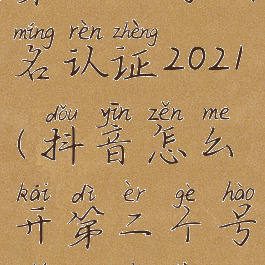 míng rèn zhèng
名认证2021
dǒu yīn zěn me
(抖音怎么
kāi dì èr gè hào
开第二个号